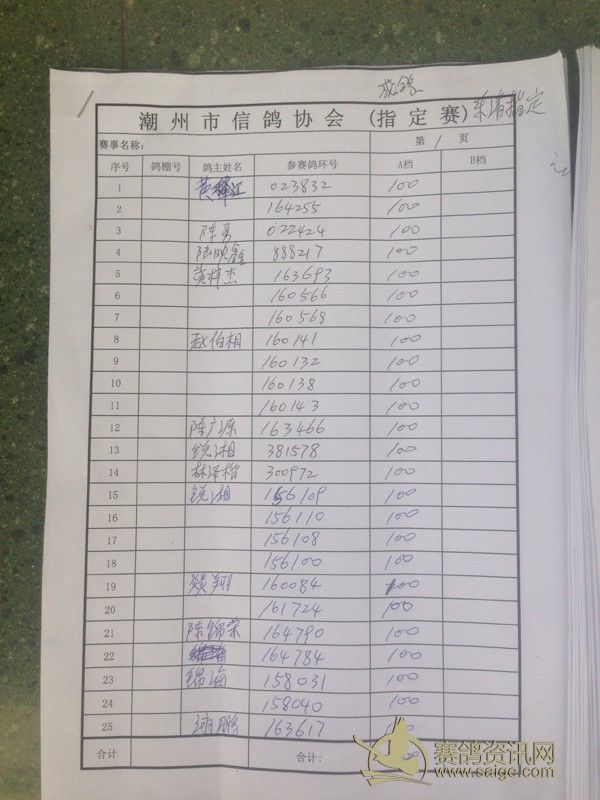 潮州市信鸽协会（指定赛）
赛事名称： 第 1 页
序号 鸽棚号 鸽主姓名 参赛鸽环号 A档 B档
1 023832 100
2 164255 100
3 陈勇 022424 100
4 888217 100
5 黄梓杰 163693 100
6 160566 100
7 160568 100
8 赵伯相 160141 100
9 160132 100
10 160138 100
11 160143 100
12 陈广泺 163466 100
13 锐湘 381578 100
14 林泽楷 300972 100
15 锐湘 156109 100
16 156110 100
17 156108 100
18 156100 100
19 160084 100
20 161724 100
21 陈锦荣 164790 100
22 164784 100
23 158031 100
24 158040 100
25 163617 100
合计 合计：
赛鸽资讯网
www.saige.com